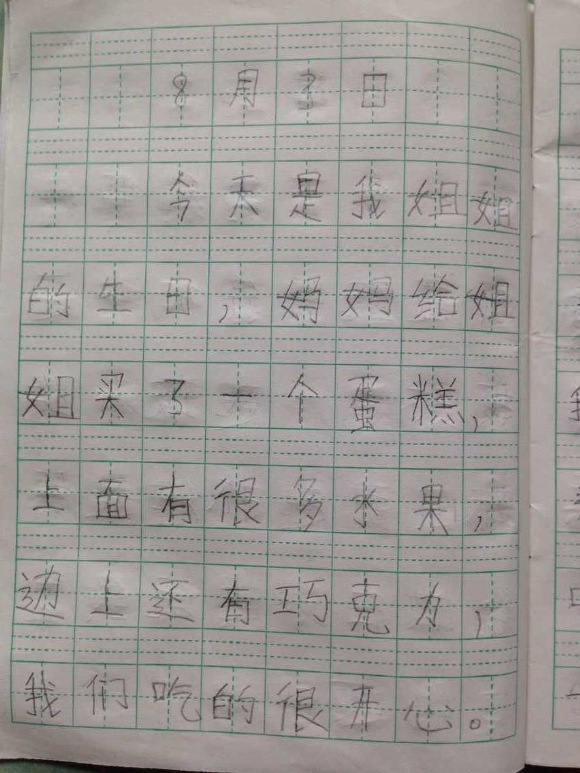 8月3日
今天是我姐姐
的生日，妈妈给姐
姐买了一个蛋糕，
上面有很多水果，
边上还有巧克力，
我们吃的很开心。